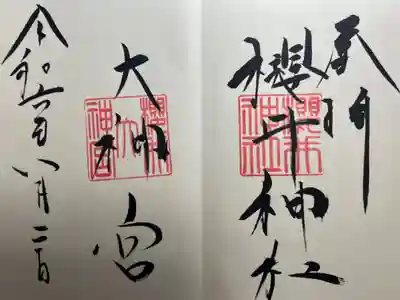 奉拝
櫻井神社
櫻井神社
大神宮
令和六年八月二日